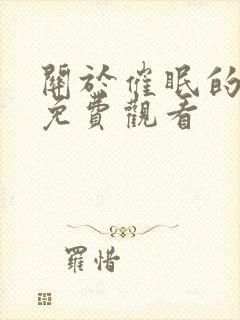 關於催眠的
免費觀看
羅惜